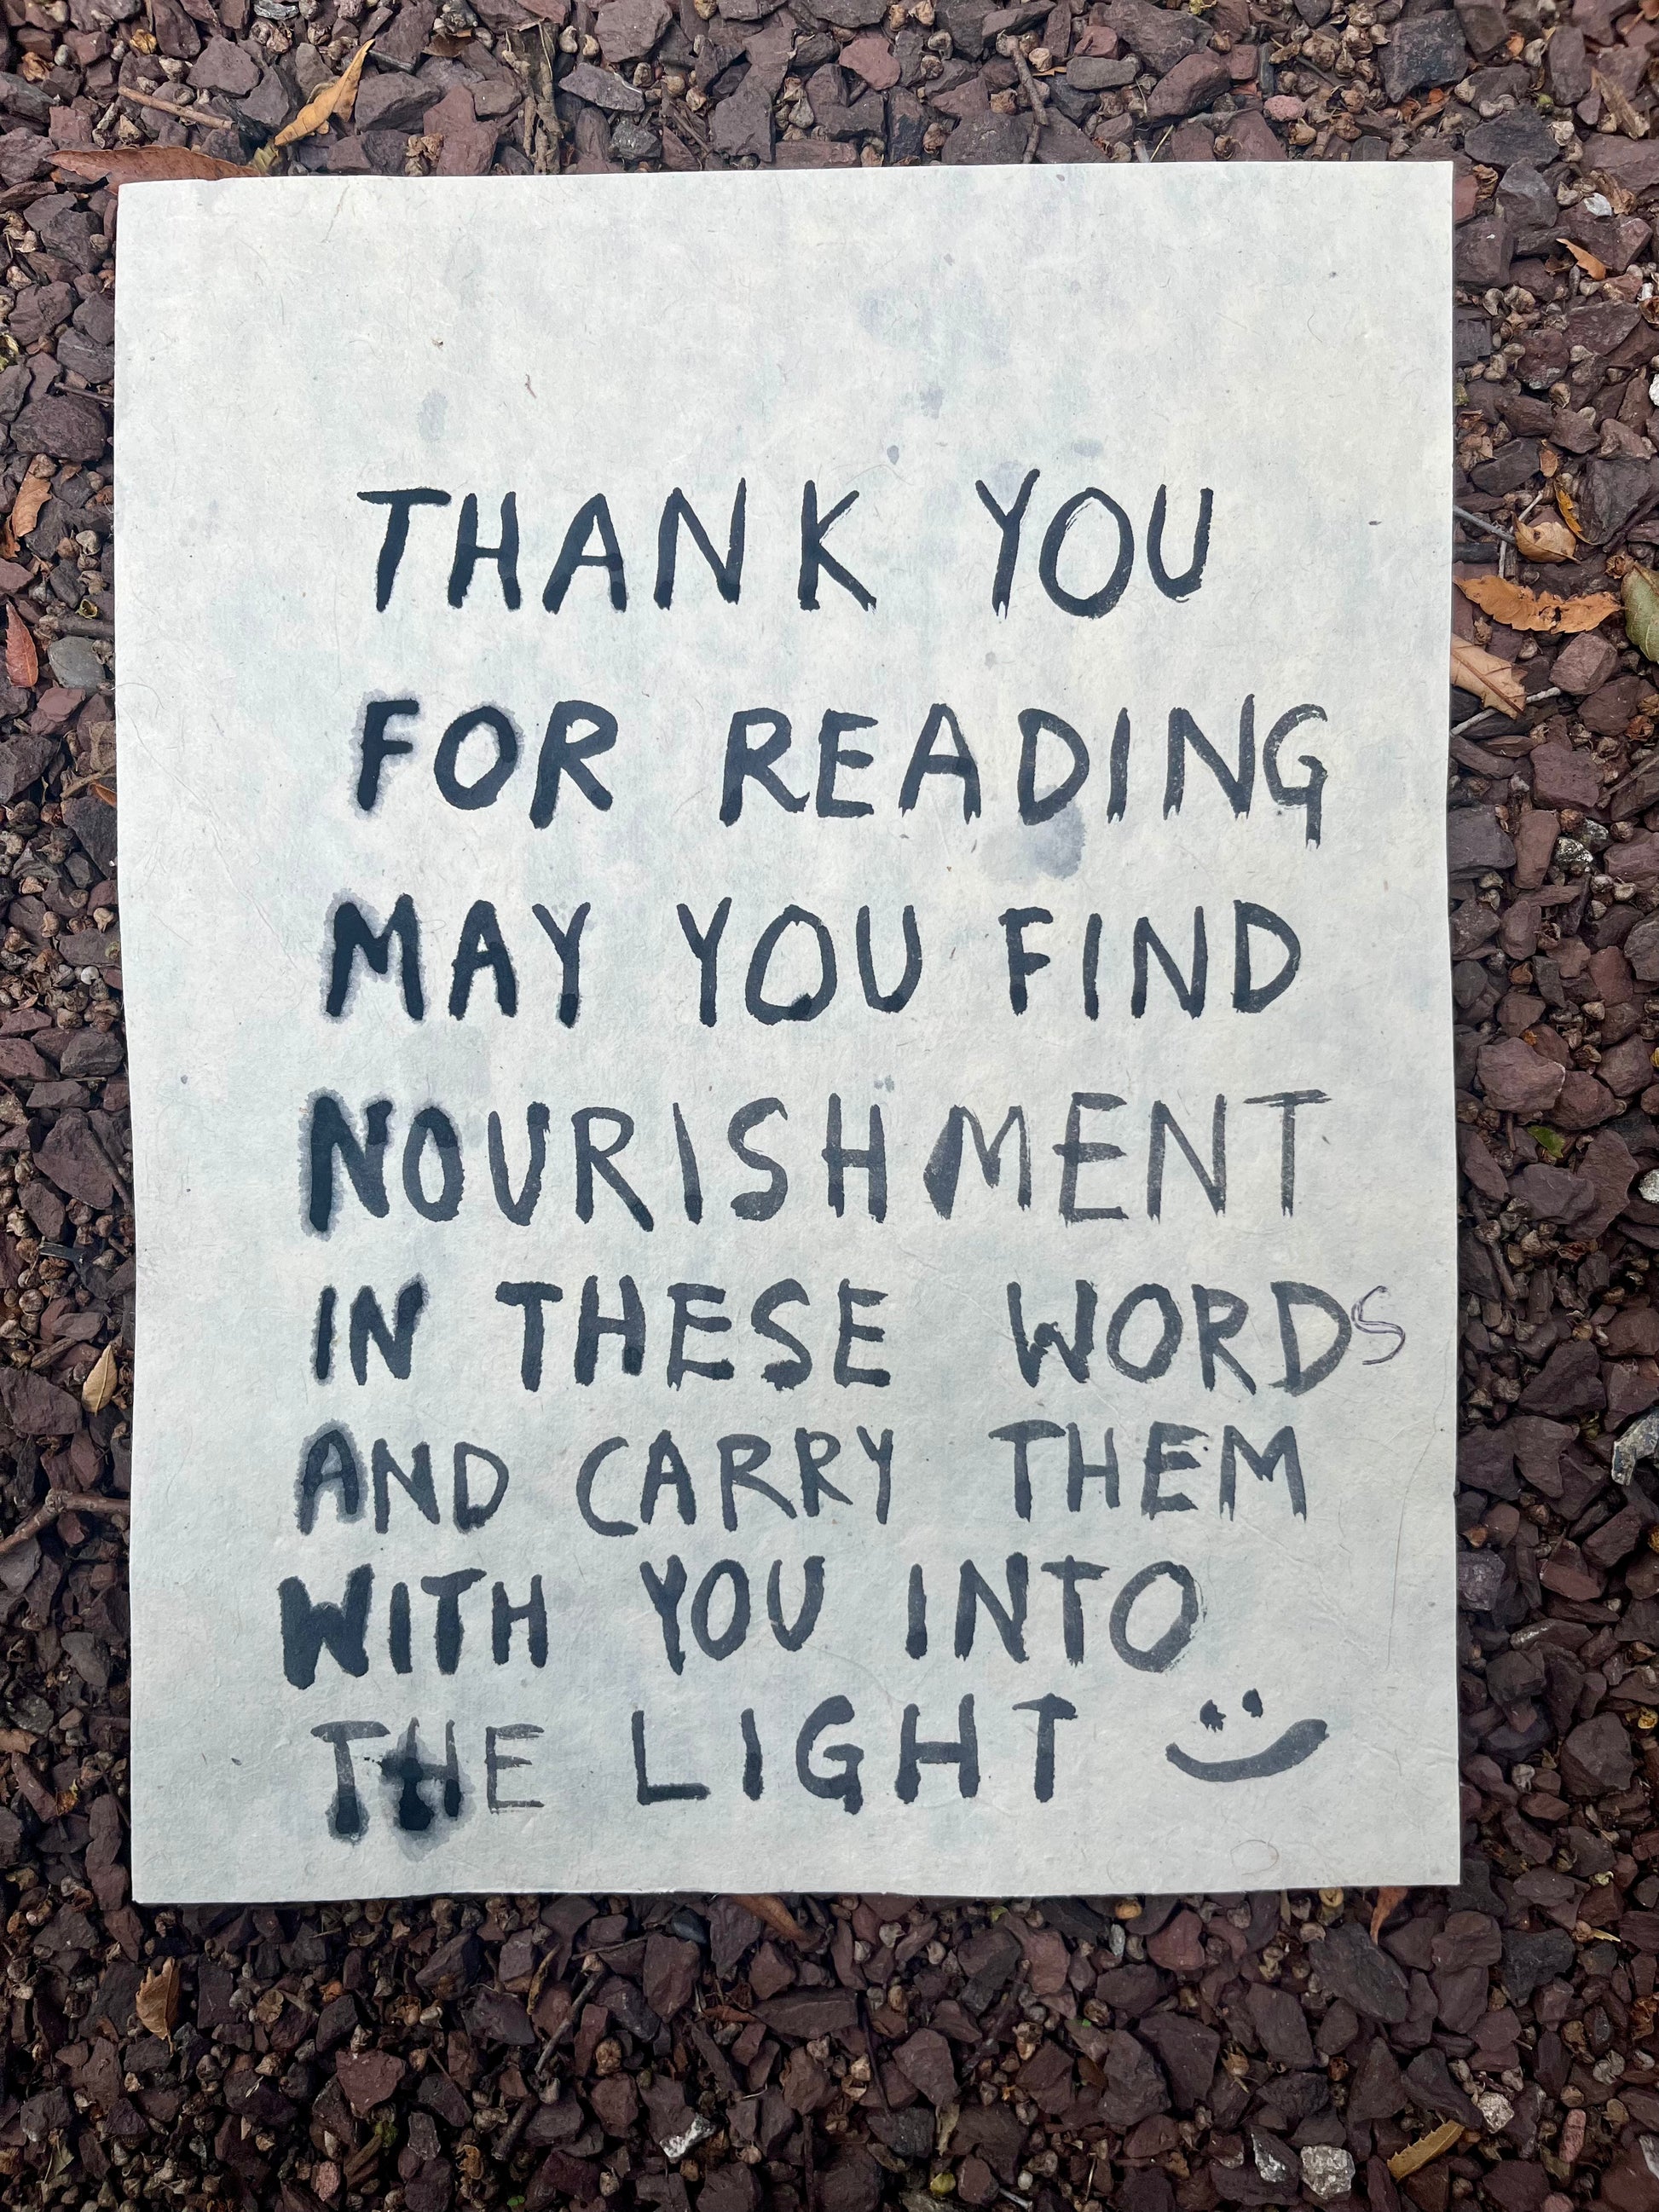 THANK YOU
FOR READING
MAY YOU FIND
NOURISHMENT
IN THESE WORDS
AND CARRY THEM
WITH YOU INTO
THE LIGHT